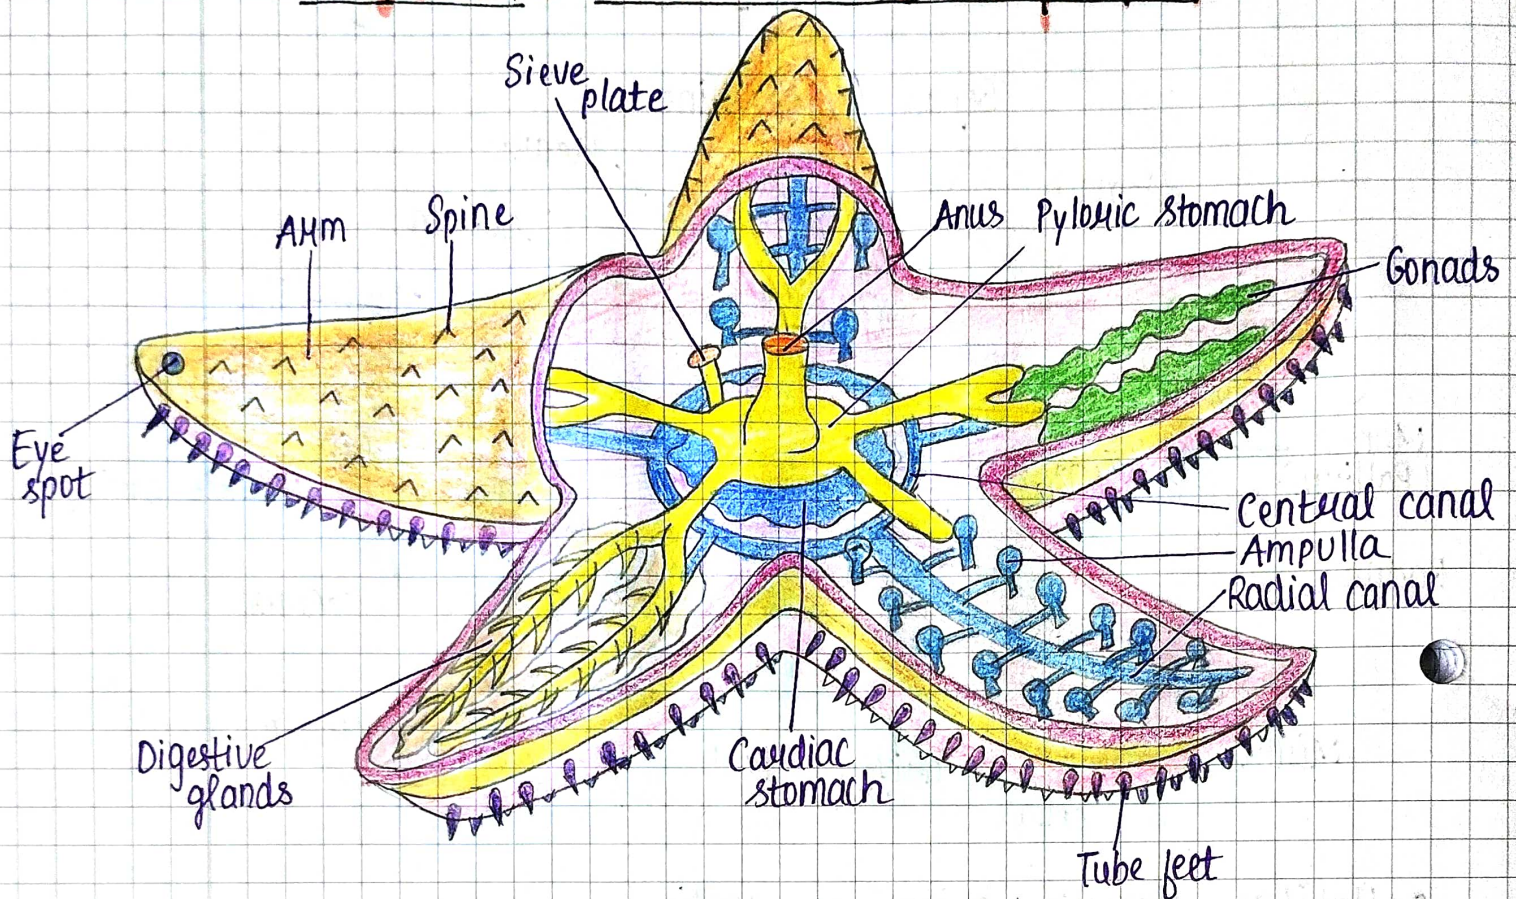 Sieve
plate
Arm
Spine
Anus
Pyloric stomach
Gonads
Eye
spot
Central canal
Ampulla
Radial canal
Digestive
glands
Cardiac
stomach
Tube feet